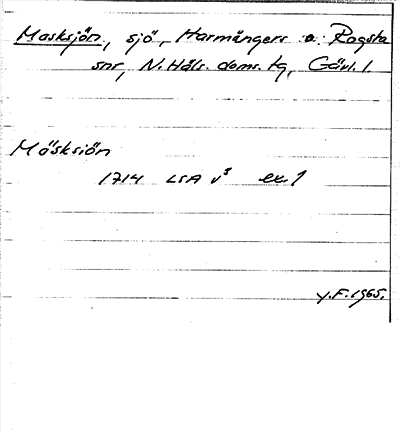 Masksjön, sjö, Harmångers o. Rogsta
snr, N. Häls. doms. tg, Gävl. l.
Mäsksiön
1714 LSA v³ ex. 1
y.F. 1965.